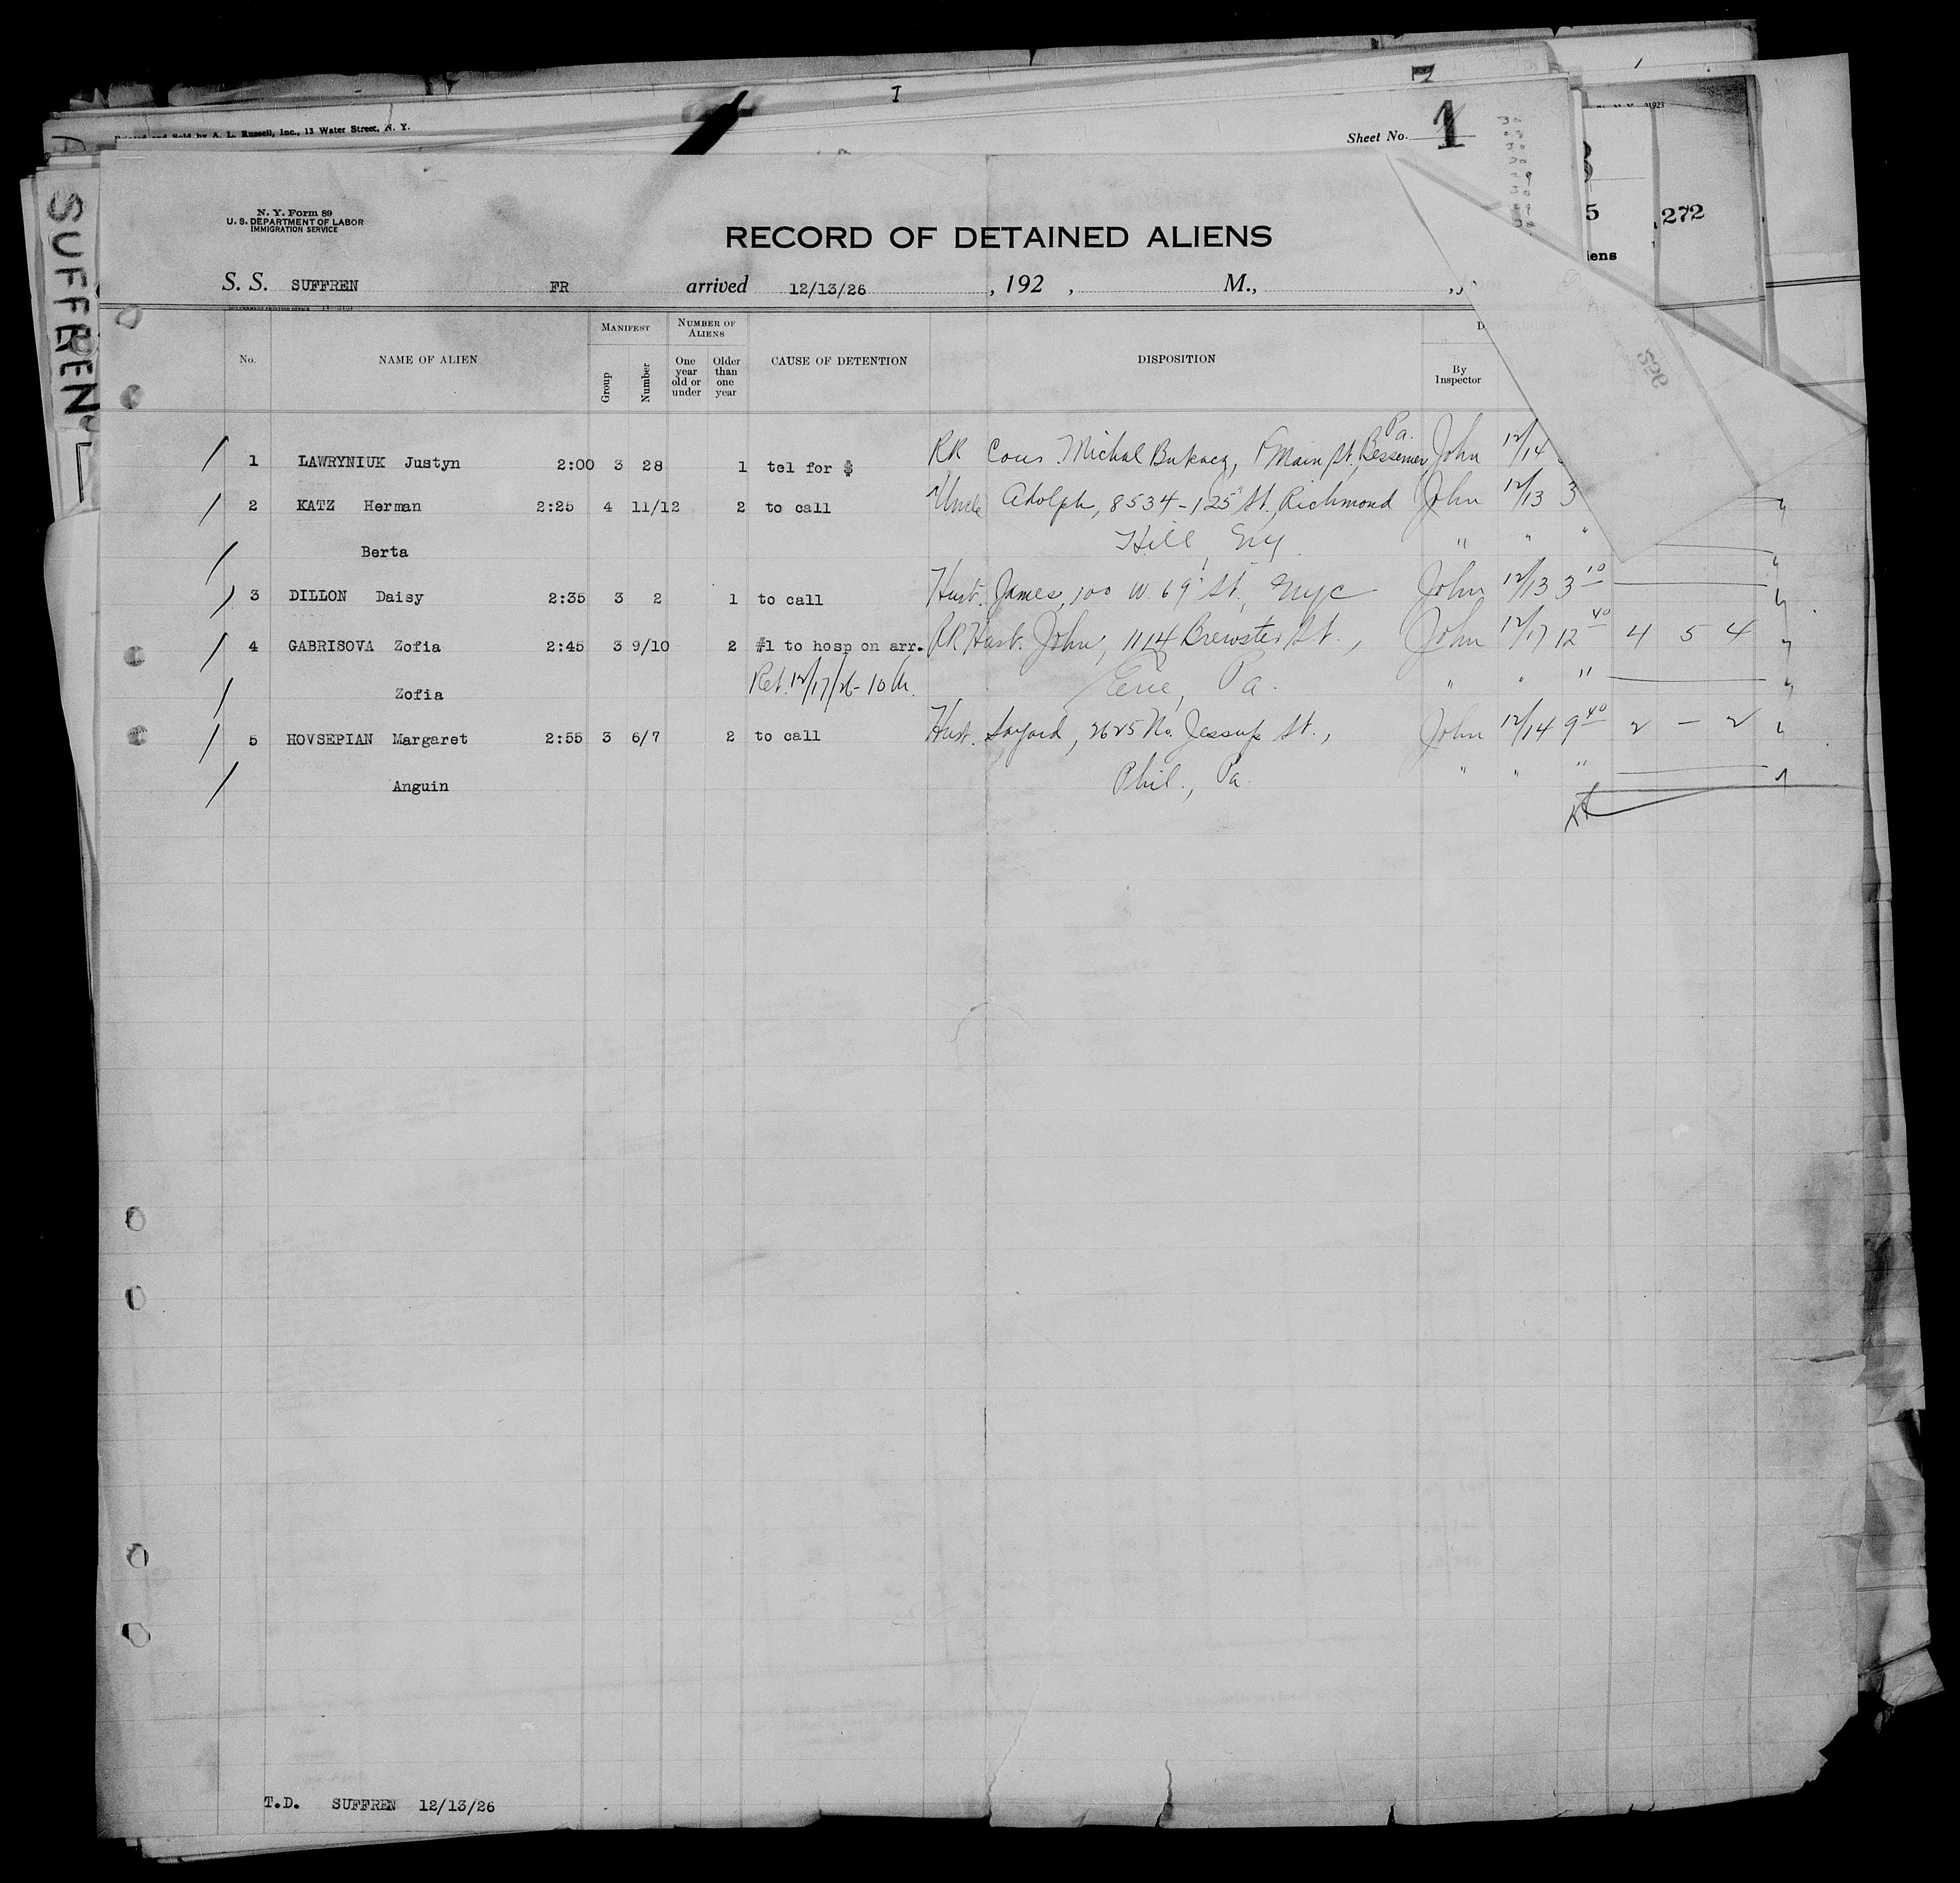 I
A. L. Russell, Inc., 13 Water Street, N. Y.
Sheet No. 1
SUFFREN
272
5
iens
N. Y. Form 89
U. S. DEPARTMENT OF LABOR
IMMIGRATION SERVICE
RECORD OF DETAINED ALIENS
S. S. SUFFREN FR arrived 12/13/26 , 192 , M.,
No. NAME OF ALIEN MANIFEST Group Number NUMBER OF ALIENS One year old or under Older than one year CAUSE OF DETENTION DISPOSITION By Inspector
Pa.
1 LAWRYNIUK Justyn 2:00 3 28 1 tel for $ RR Cous. Michal Main St. Bessemer John 12/14
2 KATZ Herman 2:25 4 11/12 2 to call Uncle Adolph, 8534-125" St., Richmond John 12/13 3
Berta Hill, NY " " "
3 DILLON Daisy 2:35 3 2 1 to call Husb. James, 100 W. 69" St., NYC John 12/13 3 10
4 GABRISOVA Zofia 2:45 3 9/10 2 #1 to hosp on arr. RR Husb. John, 1114 Brewster St., John 12/17 12 40 4 5 4
Zofia Ret. 12/17/26- 10 Erie, Pa. " " "
5 HOVSEPIAN Margaret 2:55 3 6/7 2 to call Husb. 2625 No. Jessup St., John 12/14 9 40 2 - 2
Anguin Phil., Pa. " " "
T.D. SUFFREN 12/13/26